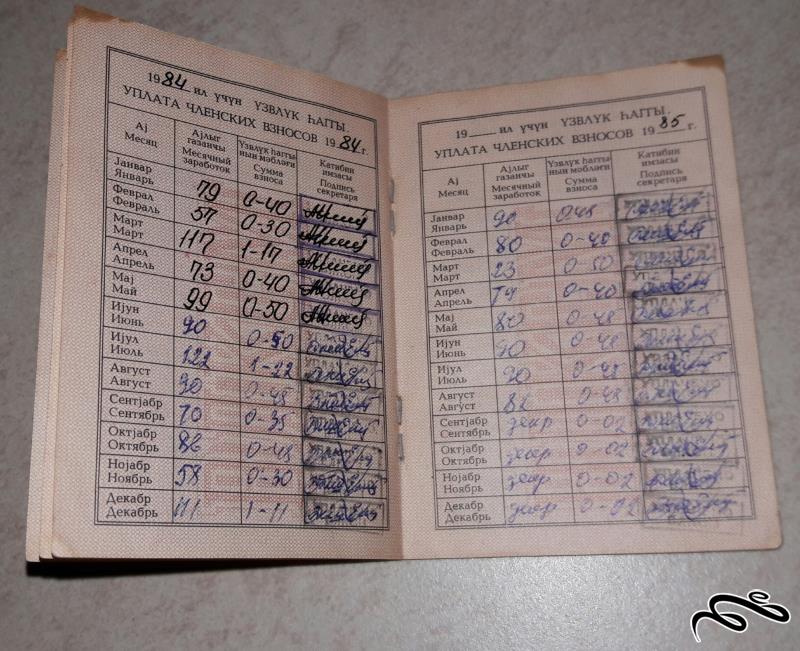 1984 ил үчүн ҮЗВЛҮК ҺАГГЫ.
УПЛАТА ЧЛЕНСКИХ ВЗНОСОВ 1984 г.
Ај Месяц
Ајлыг газанчы Месячный заработок
Үзвлүк һаггы нын мәбләғи Сумма взноса
Катибин имзасы Подпись секретаря
Јанвар Январь 79 0-40
Феврал Февраль 57 0-30
Март Март 117 1-17
Апрел Апрель 73 0-40
Мај Май 99 0-50
Ијун Июнь 90 0-50
Ијул Июль 122 1-22
Август Август 90 0-48
Сентјабр Сентябрь 70 0-35
Октјабр Октябрь 86 0-48
Нојабр Ноябрь 58 0-30
Декабр Декабрь 111 1-11
19 ил үчүн ҮЗВЛҮК ҺАГГЫ.
УПЛАТА ЧЛЕНСКИХ ВЗНОСОВ 1985 г.
Ај Месяц
Ајлыг газанчы Месячный заработок
Үзвлүк һаггы нын мәбләғи Сумма взноса
Катибин имзасы Подпись секретаря
Јанвар Январь 90 0-48
Феврал Февраль 80 0-40
Март Март 23
Апрел Апрель 74 0-40
Мај Май 80 0-48
Ијун Июнь 90 0-48
Ијул Июль 90 0-48
Август Август 82 0-48
Сентјабр Сентябрь 0-02
Октјабр Октябрь 0-02
Нојабр Ноябрь 0-02
Декабр Декабрь 0-02